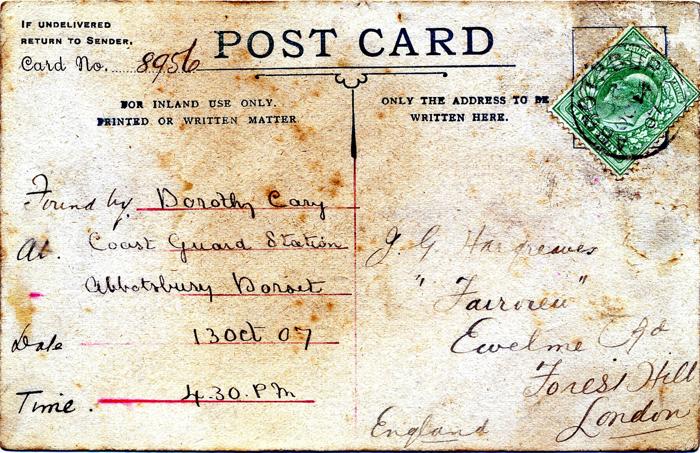 IF UNDELIVERED
RETURN TO SENDER.
Card No. 8956
POST CARD
FOR INLAND USE ONLY.
PRINTED OR WRITTEN MATTER
ONLY THE ADDRESS TO BE
WRITTEN HERE.
Found by Dorothy Cary
At. Coast Guard Station
Abbotsbury Dorset
Date 13 Oct 07
Time. 4.30. P.M
J. G. Hargreaves
"Fairview"
Ewelme Rd
Forest Hill
London
England